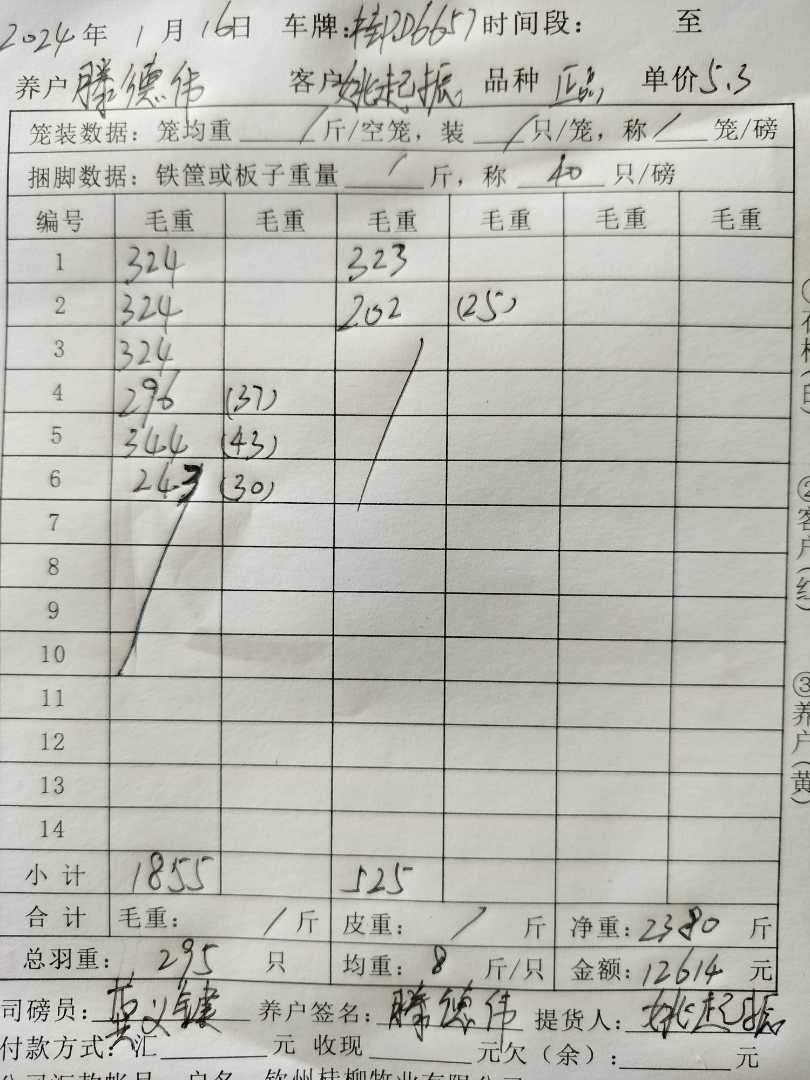 2024年 1月 16日 车牌:桂PD6657 时间段: 至
养户 滕德伟 客户 姚起振 品种 正品 单价 5.3
笼装数据: 笼均重 / 斤/空笼, 装 / 只/笼, 称 / 笼/磅
捆脚数据: 铁筐或板子重量 / 斤, 称 40 只/磅
编号 毛重 毛重 毛重 毛重 毛重 毛重
1 324 323
2 324 202 (25)
3 324
4 296 (37)
5 344 (43)
6 243 (30)
7
8
9
10
11
12
13
14
小计 1855 525
合计 毛重: / 斤 皮重: / 斤 净重: 2380 斤
总羽重: 295 只 均重: 8 斤/只 金额: 12614 元
司磅员: 养户签名: 滕德伟 提货人: 姚起振
付款方式: 汇 元 收现 元 欠(余): 元
②客户(红)
③养户(黄)